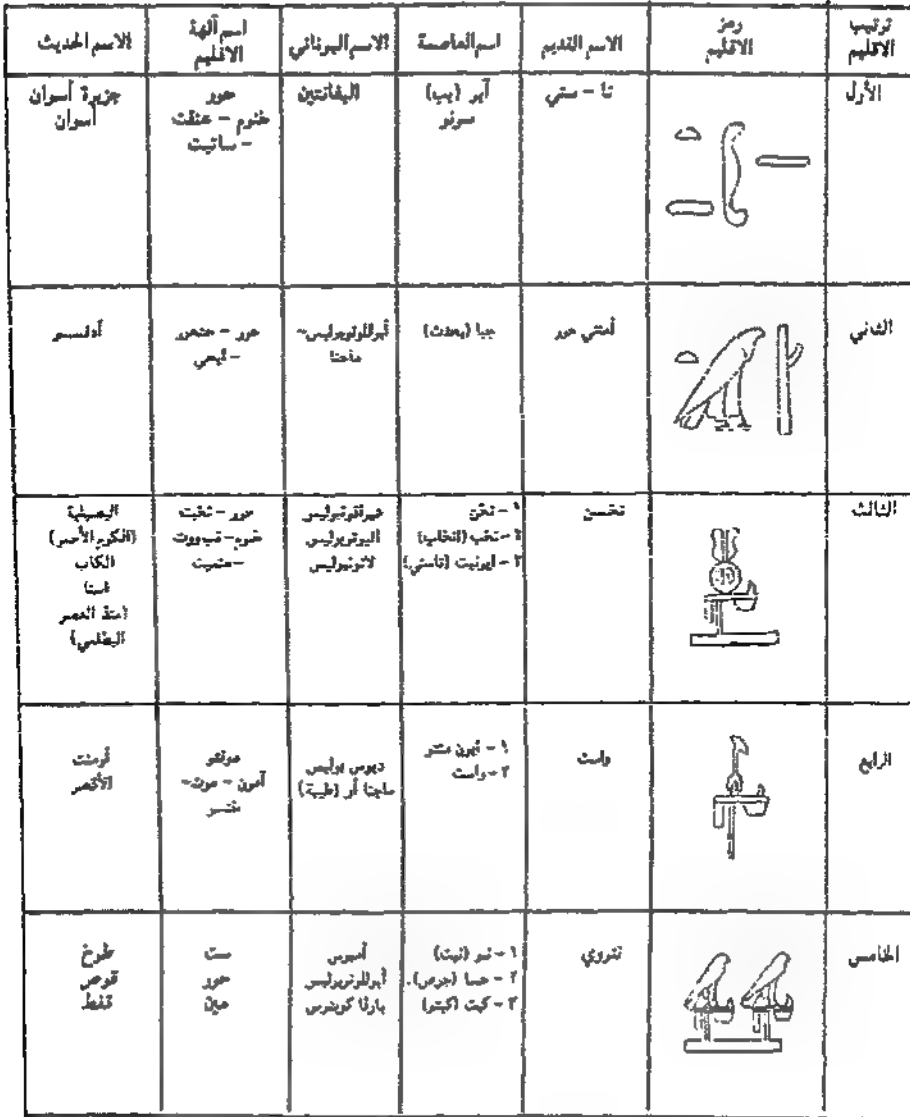 ترتيب الاقليم
رمز الاقليم
الاسم القديم
اسم العاصمة
الاسم اليوناني
اسم آلهة الاقليم
الاسم الحديث
الأول
تا - ستي
آبو (يب)
سونو
اليفانتين
حور
خنوم - عنقت
- ساتيت
جزيرة أسوان
أسوان
الثاني
أمنتي حور
جبا (بحدت)
أبوللونوبوليس-
ماجنا
حور - حتحور
- ايحي
أدفو
الثالث
نخن
١ - نخن
٢ - نخب (انخاب)
٣ - ايونيت (تاسني)
هيراقونبوليس
اليوتوبوليس
لاتونبوليس
حور - نخبت
خنوم - نب ووت
- منحيت
البصيلية
(الكوم الأحمر)
الكاب
اسنا
(منذ العصر
البطلمي)
الرابع
واست
١ - أيون منتو
٢ - واست
ديوس بوليس
ماجنا أو (طيبة)
مونتو
آمون - موت -
خنسو
أرمنت
الأقصر
الخامس
نتروي
١ - نبو (نبت)
٢ - جسا (جوص).
٣ - كبت (كبتو)
أمبوس
أبوللونوبوليس
بارفا كوبتوس
ست
حور
مين
طوخ
قوص
قفط